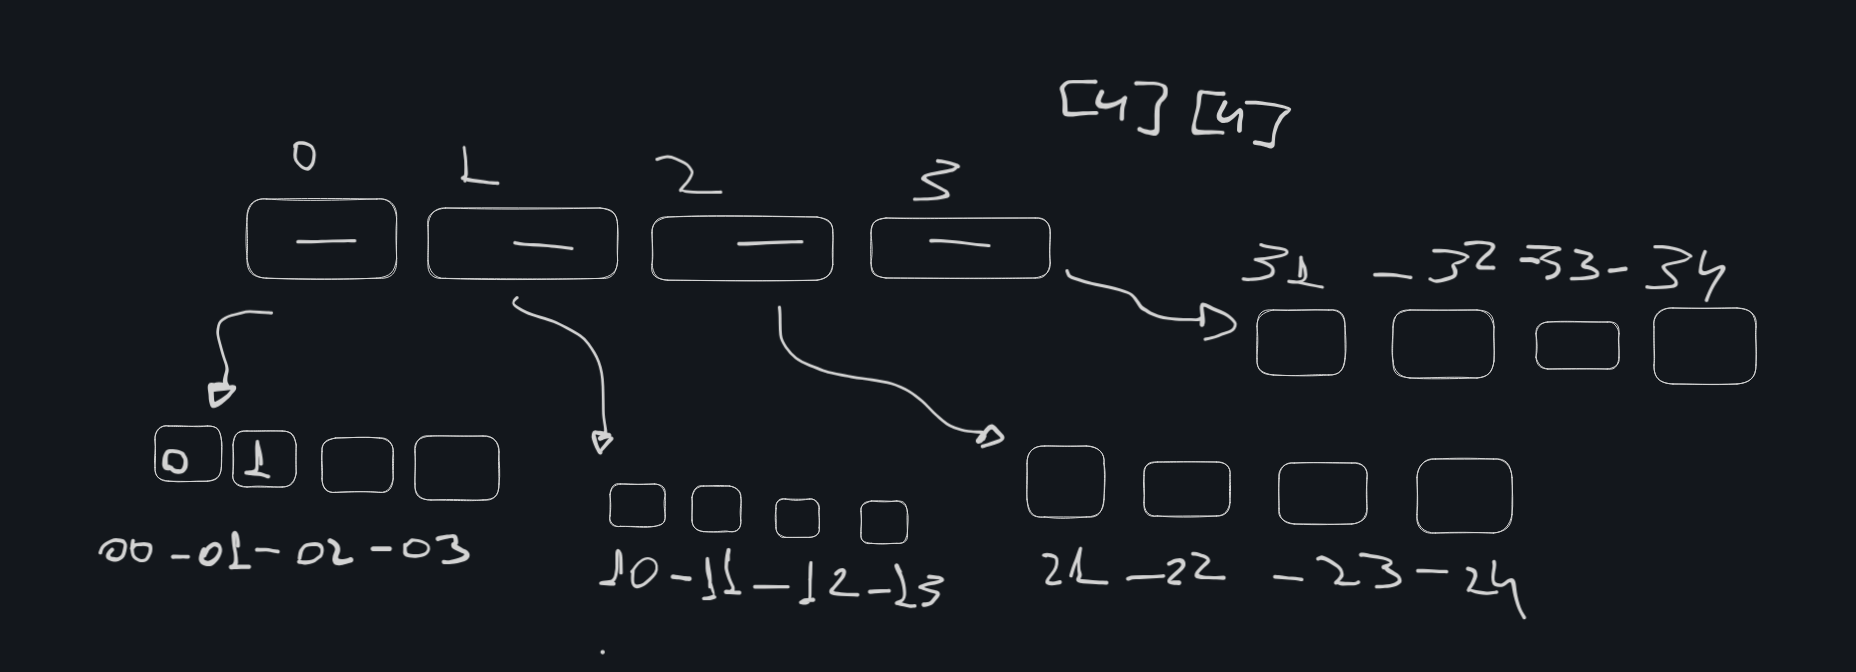 [4] [4]
0 1 2 3
31 - 32 - 33 - 34
0 1
00 - 01 - 02 - 03
10 - 11 - 12 - 13
21 - 22 - 23 - 24